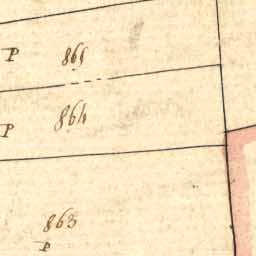 P 865
P 864
863
P